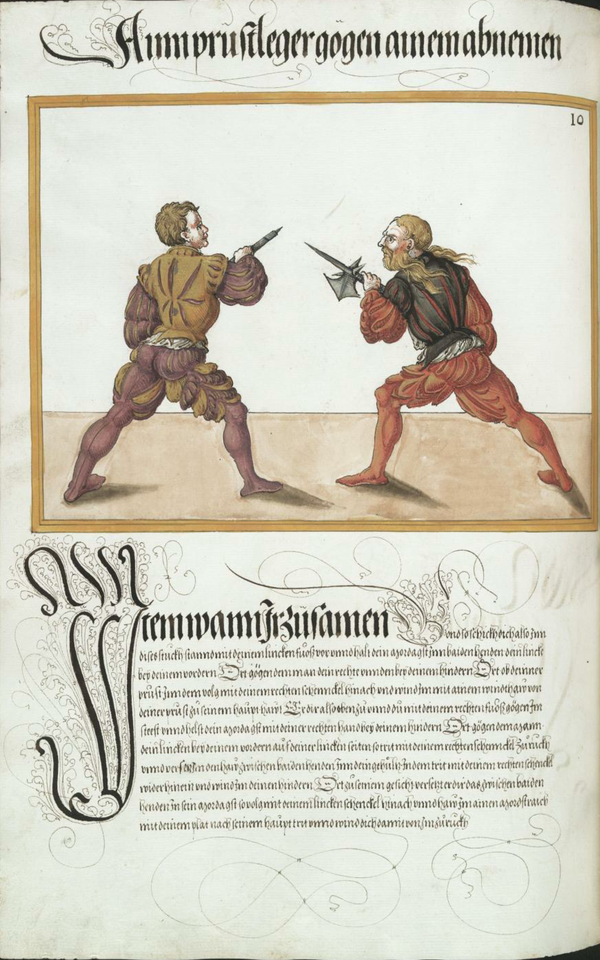 Ainn prustleger gögen ainem abnemen
10
Item wann Ir zusamen gond so schick dich also Inn
dises stuckh stannd mit deinem lincken fuoß vor vnnd halt dein agordagst Inn baiden henden dein lincke
bey deinem vordern Ort gögen dem man dein rechte vnnden bey deinem hindern Ort ob deinner
prust Inn dem volg mit deinem rechten schennckel hinach vnnd wind Im mit ainem winndthaw von
deiner prust zu seinem haupt hawt Er dir also oben zu vnnd du mit deinem rechten fuoß gögen Im
steest vnnd helst dein agordagst mit deiner rechten hannd bey deinem hindern Ort gögen dem mann
dein lincken bey deinem vordern auf deiner lincken seiten so trit mit deinem rechten schennckel zuruckh
vnnd versetz Im den haw zwischen baiden henden Inn dein gehültz Indem trit mit deinem rechten schenckel
wider hinein vnnd wind Im deinen hindern Ort zu seinem gesicht versetzt er dir das zwischen baiden
henden In sein agordagst so volg mit deinem lincken schenckel hinach vnnd haw Im ainen mordstraich
mit deinem plat nach seinem haupt trit vnnd wind dich damit von Im zuruckh